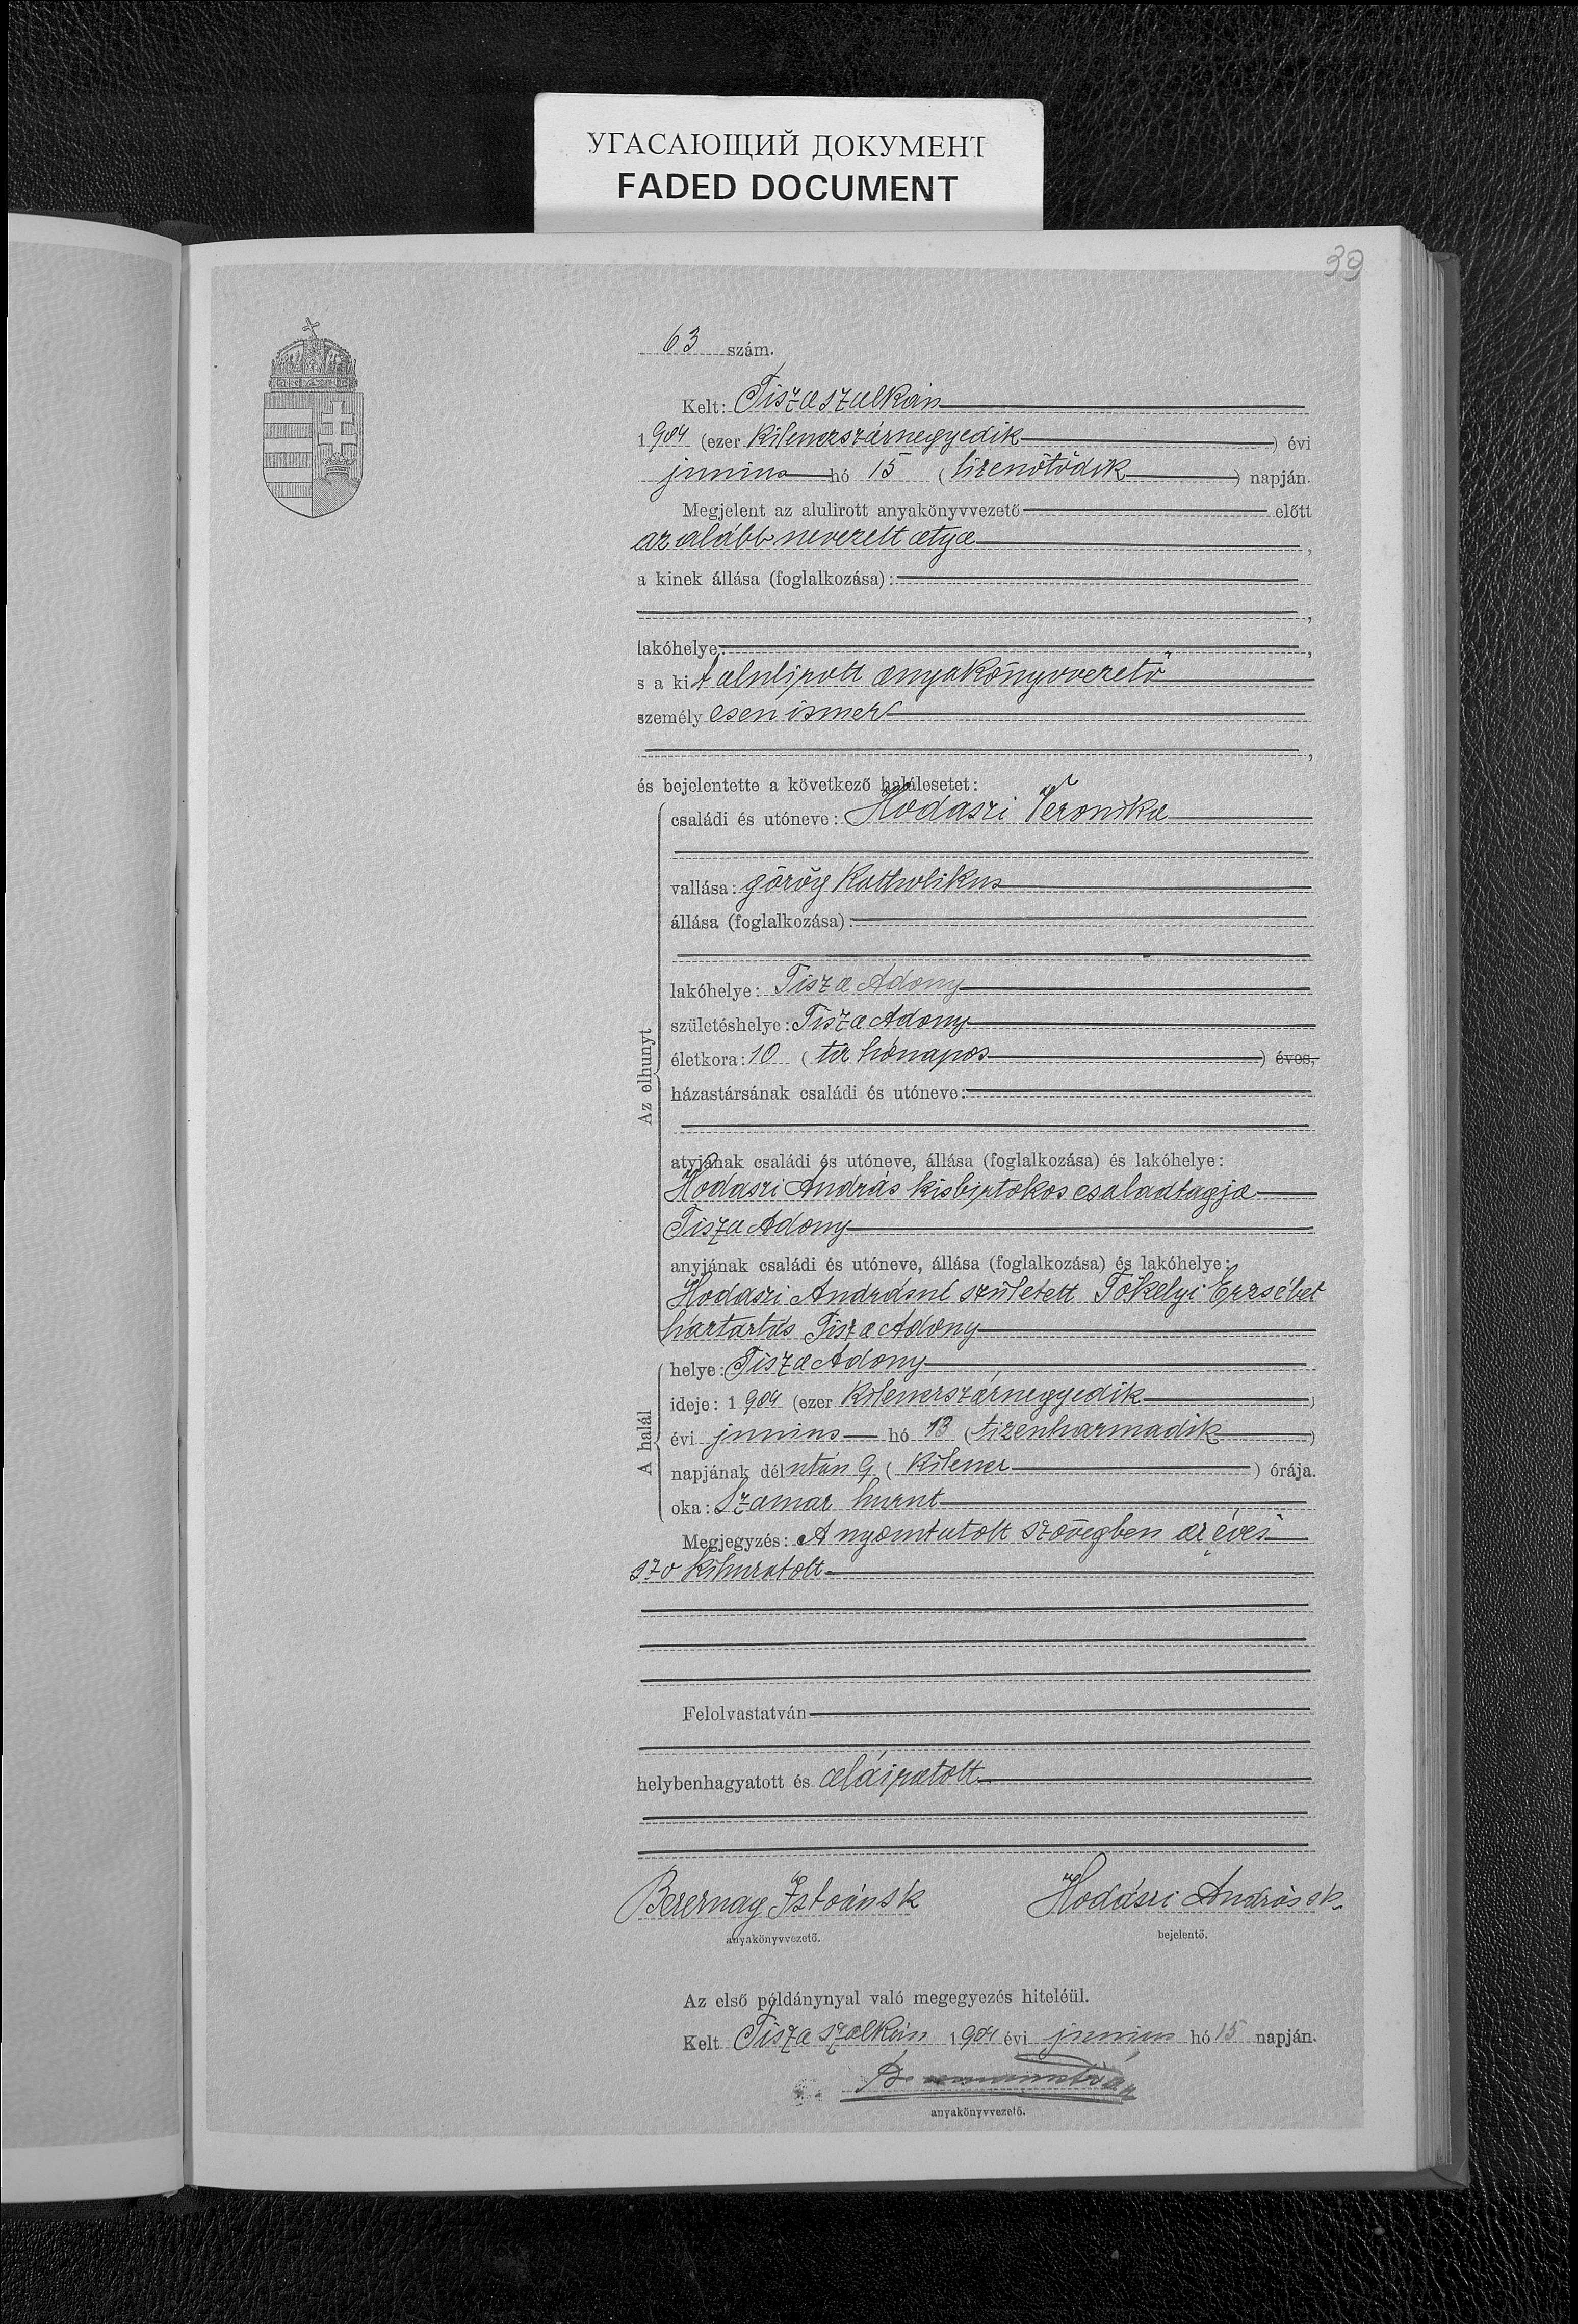 УГАСАЮЩИЙ ДОКУМЕНТ
FADED DOCUMENT
39
63 szám.
Kelt: Tiszaszalkán
1904 (ezer kilenczszáznegyedik) évi
junius hó 15 (tizenötödik) napján.
Megjelent az alulirott anyakönyvvezető előtt
az alább nevezett atya,
a kinek állása (foglalkozása):
,
lakóhelye: ,
s a kit alulirott anyakönyvvezető
személyesen ismer
,
és bejelentette a következő halálesetet:
Az elhunyt
családi és utóneve: Hodaszi Veronika
vallása: görög katholikus
állása (foglalkozása):
lakóhelye: Tisza Adony
születéshelye: Tisza Adony
életkora: 10 (tíz hónapos) éves,
házastársának családi és utóneve:
atyjának családi és utóneve, állása (foglalkozása) és lakóhelye:
Hodaszi András kisbirtokos családtagja
Tisza Adony
anyjának családi és utóneve, állása (foglalkozása) és lakóhelye:
Hodaszi Andrásné született Tökelyi Erzsébet
háztartás Tisza Adony
A halál
helye: Tisza Adony
ideje: 1904 (ezer kilenczszáznegyedik)
évi junius hó 13 (tizenharmadik)
napjának délután 9 (kilencz) órája.
oka: Szamár hurut
Megjegyzés: A nyomtatott szövegben az éves
szó kihuzatott
Felolvastatván
helybenhagyatott és aláiratott
István sk Hodászi András sk.
anyakönyvvezető. bejelentő.
Az első példánynyal való megegyezés hiteléül.
Kelt Tisza szalkán 1904 évi junius hó 15 napján.
anyakönyvvezető.